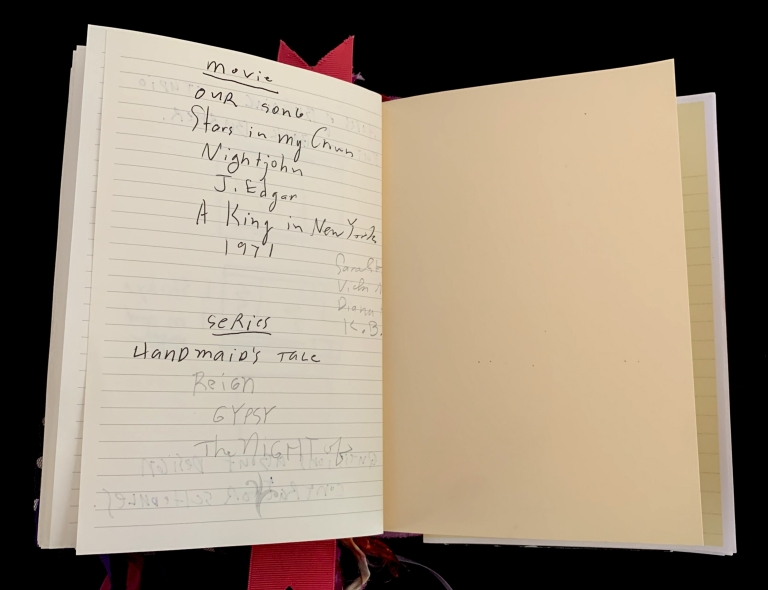 movie
OUR SONG
Stars in my Crown
Nightjohn
J. Edgar
A King in New York
1971
Sarah
Diana
K.B.
SERIES
HANDMAID'S TALE
Reign
GYPSY
The NIGHT of